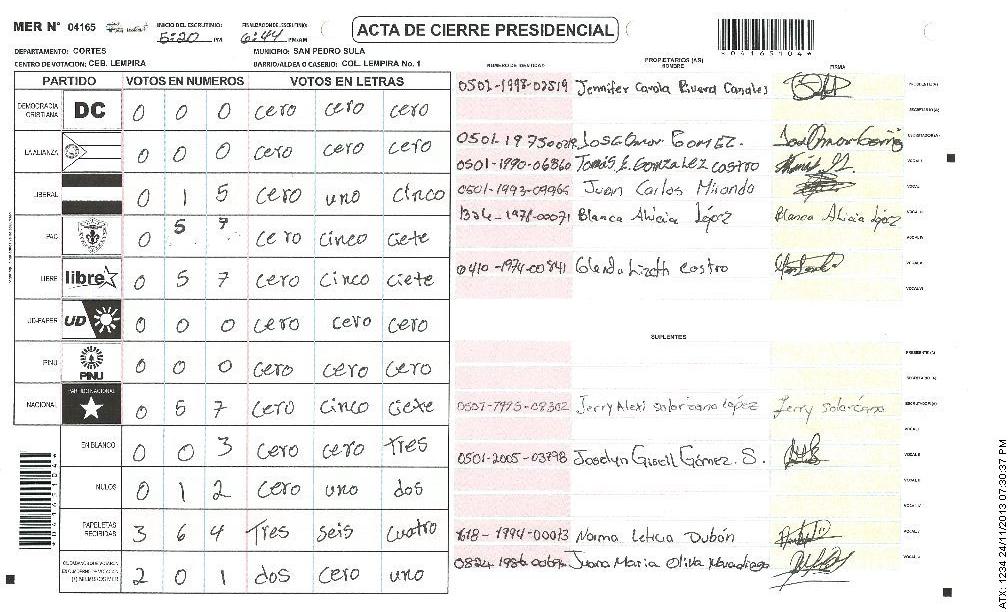 MER N° 04165 INICIO DEL ESCRUTINIO: 5:20 PM FINALIZACION DEL ESCRUTINIO: 6:44 PM/AM
ACTA DE CIERRE PRESIDENCIAL
*04165104*
DEPARTAMENTO: CORTES MUNICIPIO: SAN PEDRO SULA
CENTRO DE VOTACION: CEB. LEMPIRA BARRIO/ALDEA O CASERIO: COL. LEMPIRA No. 1
PARTIDO VOTOS EN NUMEROS VOTOS EN LETRAS
DEMOCRACIA CRISTIANA DC 0 0 0 cero cero cero
LA ALIANZA 0 0 0 cero cero cero
LIBERAL 0 1 5 cero uno cinco
PAC 0 5 7 cero cinco ciete
LIBRE libre 0 5 7 cero cinco ciete
UD-FAPER UD 0 0 0 cero cero cero
PINU PINU 0 0 0 cero cero cero
NACIONAL PARTIDO NACIONAL 0 5 7 cero cinco ciete
EN BLANCO 0 0 3 cero cero tres
NULOS 0 1 2 cero uno dos
PAPELETAS RECIBIDAS 3 6 4 Tres seis cuatro
2 0 1 dos cero uno
*04165104*
PROPIETARIOS (AS)
NUMERO DE IDENTIDAD NOMBRE FIRMA
0501-1998-02519 Jennifer Carola Rivera Canales PRESIDENTE(A)
SECRETARIO(A)
Jose Omar Gomez. Jose Omar Gomez ESCRUTADOR(A)
0501-1990-06860 Tomás E. Gonzalez castro VOCAL I
0501-1993-09966 Juan Carlos Miranda VOCAL
Blanca Alicia López Blanca Alicia López VOCAL III
VOCAL IV
0410-1974-00841 Glenda Lizeth castro VOCAL V
VOCAL VI
SUPLENTES
PRESIDENTE (A)
SECRETARIO (A)
Jerry Alexi Solorzano López Jerry Solorzano ESCRUTADOR(A)
VOCAL I
0501-2005-03798 Joselyn Gisell Gómez. S. VOCAL II
VOCAL III
VOCAL IV
1618-1994-00073 Norma Leticia Dubón VOCAL V
Juana Maria Oliva VOCAL VI
ATX: 1234 24/11/2013 07:30:37 PM